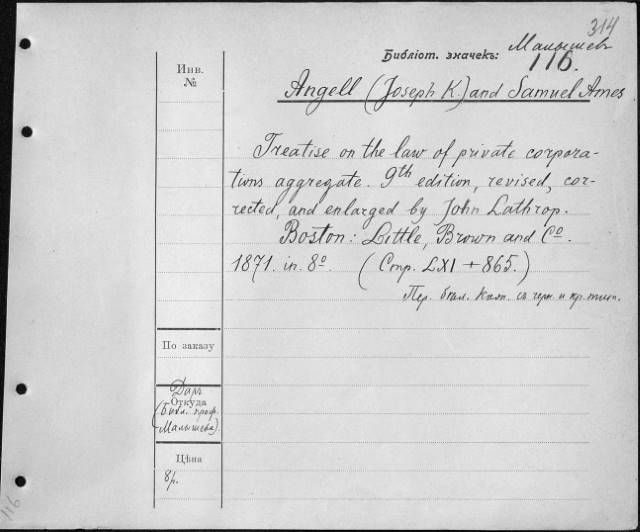 314
Малышев
Библіот. значекъ: 116.
Инв.
№
Angell (Joseph K.) and Samuel Ames
Treatise on the law of private corpora-
tions aggregate. 9th edition, revised, cor-
rected, and enlarged by John Lathrop.
Boston: Little, Brown and Cº.
1871. in. 8º. (Стр. LXI + 865.)
Пер. кож. съ черн. и кр. тит.
По заказу
Даръ
Откуда
(Библ. проф.
Малышева).
Цѣна
8 р.
116